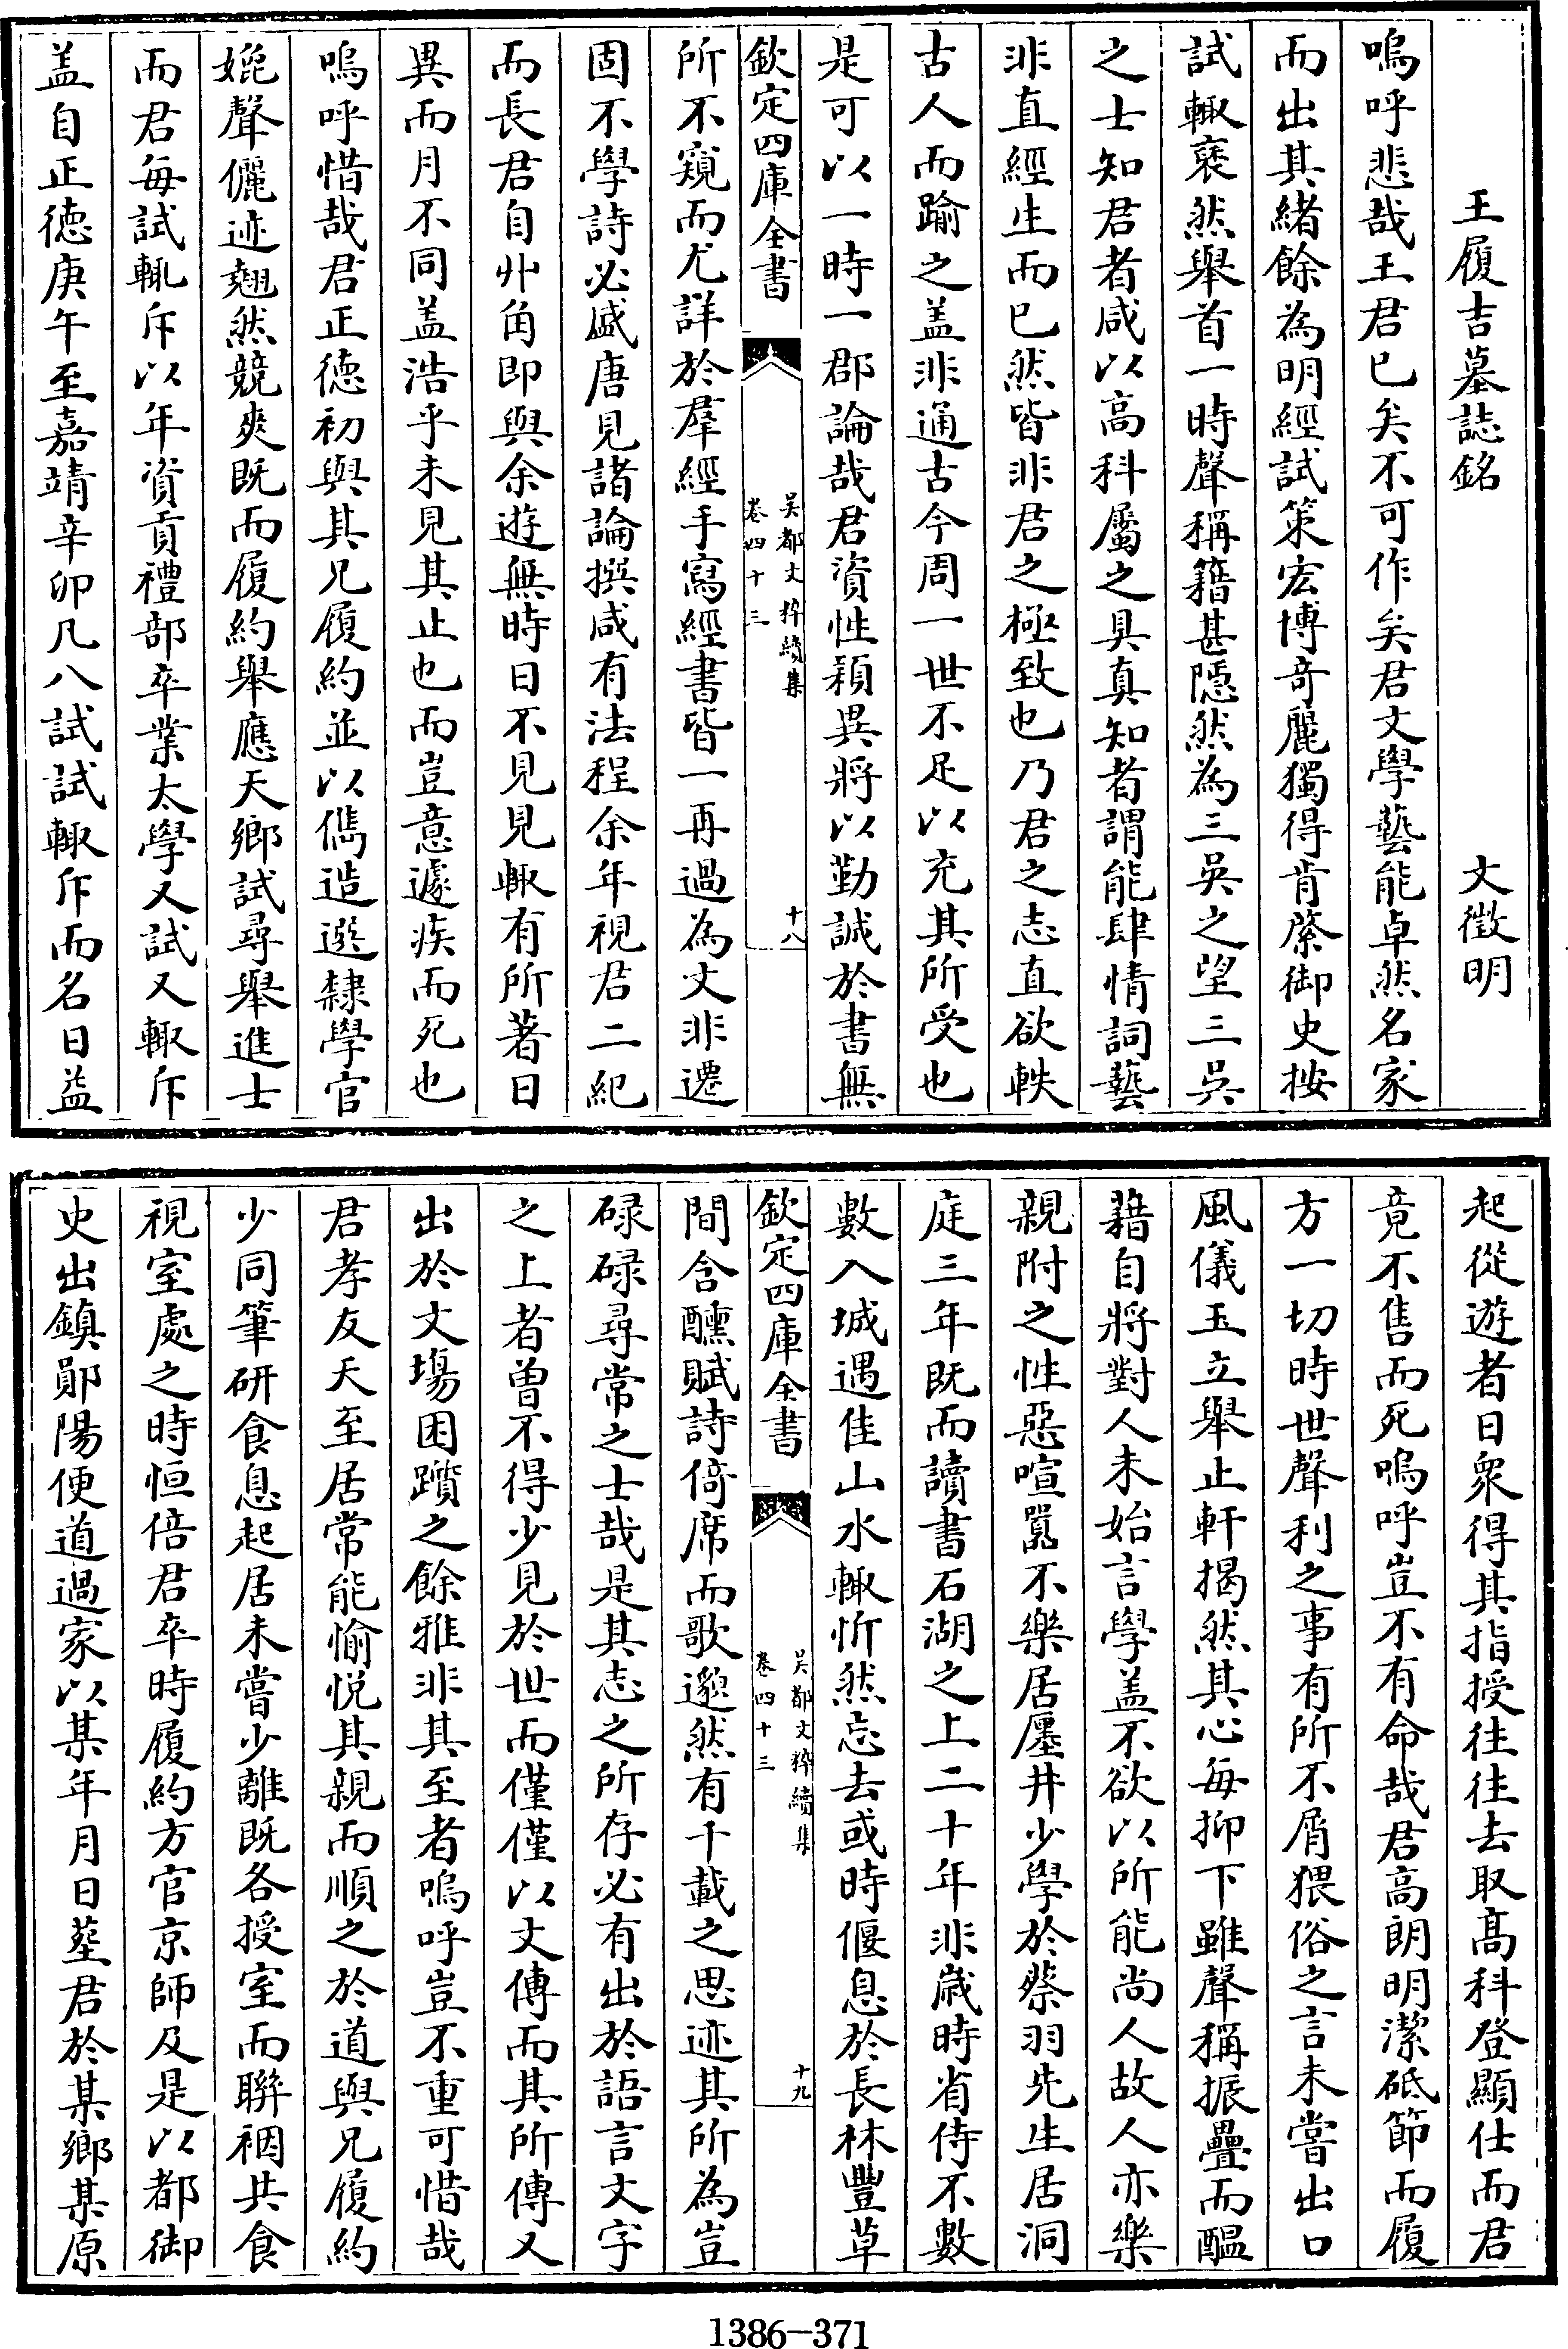 王履吉墓誌銘 文徵明
嗚呼悲哉王君已矣不可作矣君文學藝能卓然名家
而出其緒餘為明經試策宏博奇麗獨得肯綮御史按
試輙裒然舉首一時聲稱籍甚隱然為三吳之望三吳
之士知君者咸以高科屬之具真知者謂能肆情詞藝
非直經生而已然皆非君之極致也乃君之志直欲軼
古人而踰之盖非通古今周一世不足以充其所受也
是可以一時一郡論哉君資性穎異將以勤誠於書無
欽定四庫全書 吳都文粹續集 卷四十三 十八
所不窺而尤詳於羣經手寫經書皆一再過為文非遷
固不學詩必盛唐見諸論撰咸有法程余年視君二紀
而長君自丱角即與余遊無時日不見見輙有所著日
異而月不同盖浩乎未見其止也而豈意遽疾而死也
嗚呼惜哉君正德初與其兄履約並以儁造選隸學官
媲聲儷迹翹然競爽既而履約舉應天鄉試尋舉進士
而君每試輒斥以年資貢禮部卒業太學又試又輙斥
盖自正德庚午至嘉靖辛卯凡八試試輙斥而名日益
起從遊者日衆得其指授往往去取髙科登顯仕而君
竟不售而死嗚呼豈不有命哉君高朗明潔砥節而履
方一切時世聲利之事有所不屑猥俗之言未嘗出口
風儀玉立舉止軒揭然其心每抑下雖聲稱振疊而醞
藉自將對人未始言學盖不欲以所能尚人故人亦樂
親附之性惡喧嚣不樂居廛井少學於蔡羽先生居洞
庭三年既而讀書石湖之上二十年非歲時省侍不數
數入城遇佳山水輙忻然忘去或時偃息於長林豐草
欽定四庫全書 吳都文粹續集 卷四十三 十九
間含醺賦詩倚席而歌邈然有千載之思迹其所為豈
碌碌尋常之士哉是其志之所存必有出於語言文字
之上者曾不得少見於世而僅僅以文傳而其所傳又
出於文塲困躓之餘雅非其至者嗚呼豈不重可惜哉
君孝友天至居常能愉悅其親而順之於道與兄履約
少同筆研食息起居未嘗少離既各授室而聨裀共食
視室處之時恒倍君卒時履約方官京師及是以都御
史出鎮鄖陽便道過家以某年月日塟君於某鄉某原
1386-371